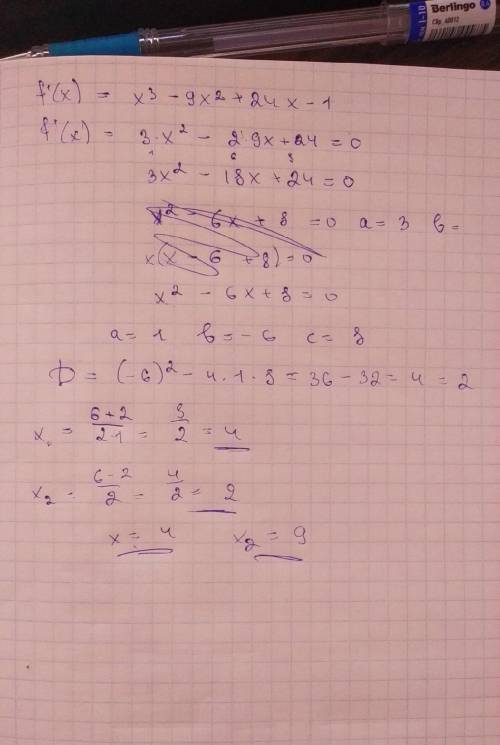 Berlingo
1-10
f'(x) = x³ - 9x² + 24x - 1
f'(x) = 3·x² - 2·9x + 24 = 0
1 6 8
3x² - 18x + 24 = 0
x² - 6x + 8 = 0 a = 3 b =
x(x - 6 + 8) = 0
x² - 6x + 8 = 0
a = 1 b = -6 c = 8
D = (-6)² - 4·1·8 = 36 - 32 = 4 = 2
x₁ = 6+2/2·1 = 8/2 = 4
x₂ = 6-2/2 = 4/2 = 2
x = 4 x₂ = 9